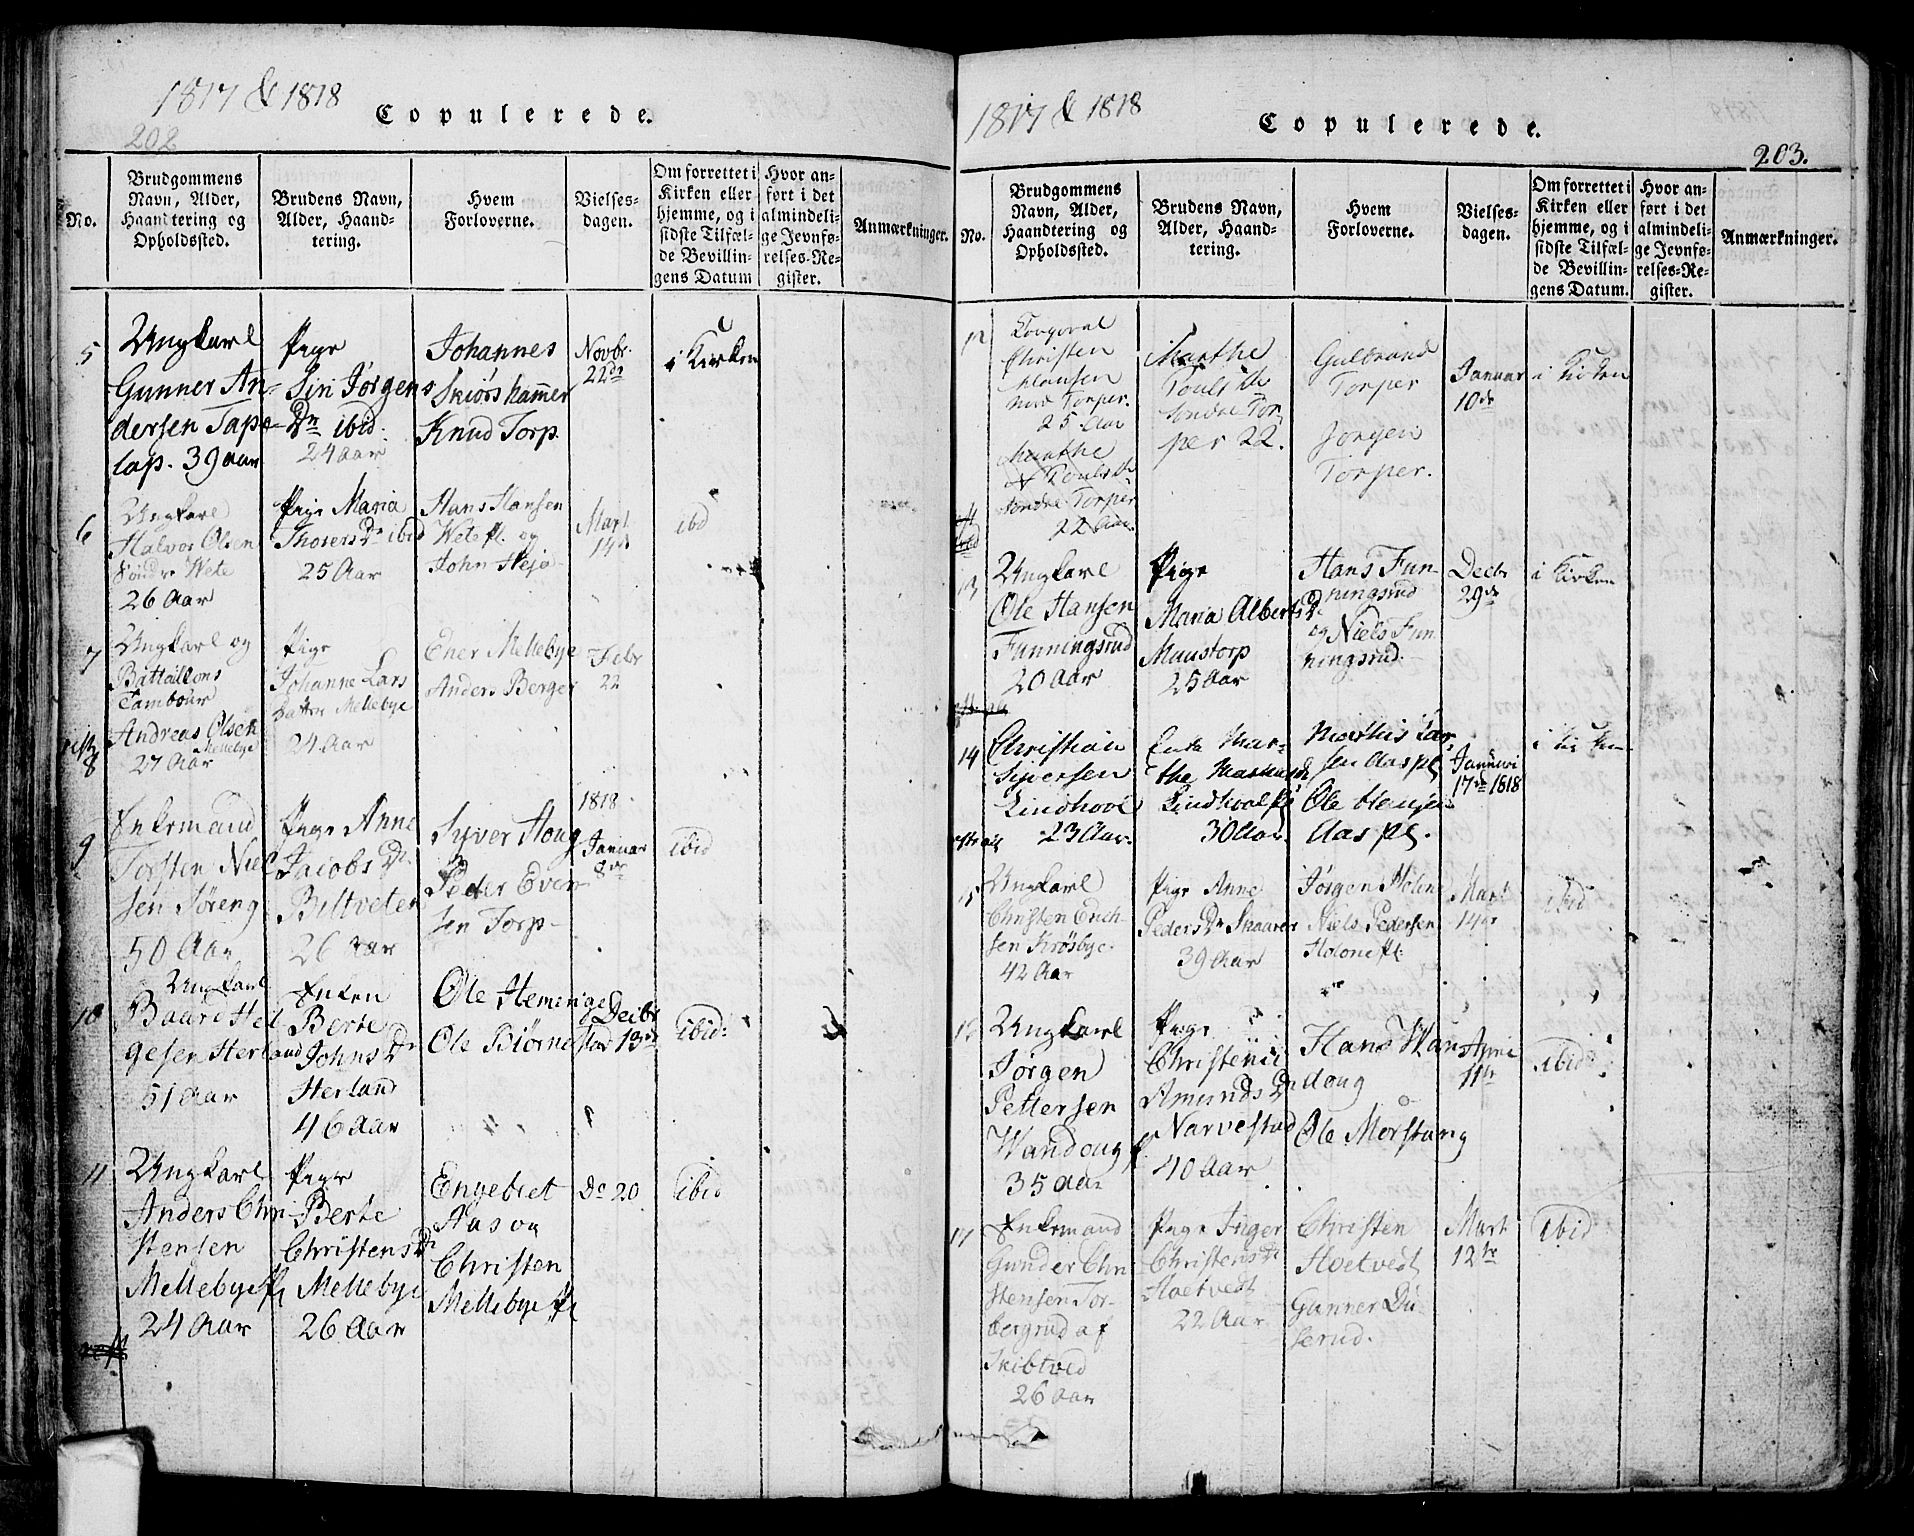 1817 & 1818
Copulerede.
202
No.
Brudgommens
Navn, Alder,
Haandtering og
Opholdssted.
Brudens Navn,
Alder, Haand-
tering.
Hvem
Forloverne.
Vielses-
dagen.
Om forrettet i
Kirken eller
hjemme, og i
sidste Tilfæl-
de Bevillin-
gens Datum
Hvor an-
ført i det
almindeli-
ge Jevnfø-
relses-Re-
gister.
Anmærkninger.
5
Ungkarl
Gunner An-
dersen Tapa-
lap. 39 aar
Pige
Siri Jørgens
Dr ibid.
24 aar
Johannes
Skiørshammer
Knud Torp.
Novbr.
22de
i Kirken
6
Ungkarl
Halvor Olsen
Søndre Wete
26 Aar
Pige Maria
Thorers Dr ibid
25 Aar
Hans Hansen
Wete pl. og
John Hejo
Mart
14de
ibid
7
Ungkarl og
Battaillons
Tambour
Andreas Olsen
Mellebye
27 Aar
8
Pige
Johanne Lars
datter Mellebye
24 Aar
Ener Mellebye
Anders Berger
Febr
22
9
Enkemand
Torsten Niel
sen Tøreng
50 Aar
Pige Anne
Jacobs Dr
Bistveter
26 Aar
Syver Houg
Peder Even
sen Torp
1818
Januar
8de
ibid
10
Ungkarl
Baard Hel
gesen Herland
51 Aar
Enken
Berte
Johns Dr
Herland
46 Aar
Ole Heminge
Ole Biørnestad
Decbr
13de
ibid.
11
Ungkarl
Anders Chri
stensen
Mellebye pl
24 Aar
Pige
Berte
Christens Dr
Mellebye
26 Aar
Engebret
Aas og
Christen
Mellebye pl
Do 20
ibid
1817 & 1818
Copulerede.
203.
No.
Brudgommens
Navn, Alder,
Haandtering og
Opholdssted.
Brudens Navn,
Alder, Haand-
tering.
Hvem
Forloverne.
Vielses-
dagen.
Om forrettet i
Kirken eller
hjemme, og i
sidste Tilfæl-
de Bevillin-
gens Datum.
Hvor an-
ført i det
almindeli-
ge Jevnfø-
relses-Re-
gister.
Anmærkninger.
12
Christen
Clausen
nord Torper.
25 Aar
Marthe
Pouls Dr
Søndre Torper
22 Aar.
Marthe
Pouls Dr
Søndre Tor
per 22.
Gulbrand
Torper
Jørgen
Torper.
Januar
10de
i Kirken
13
Ungkarl
Ole Hansen
Funningsrud
20 Aar
Pige
Maria Alberts Dr
Maustorp
25 Aar
Hans Fun-
ningsrud
og Niels Fun
ningsrud
Decbr
29de
i Kirken
14
Christian
Syversen
Lindhovl
23 Aar.
Enke Mar-
the
Lindhval pl
30 Aar
Mathis Lar
sen Aas pl
Ole Hansen
Aas pl.
Januari
17de 1818
i Kirken
15
Ungkarl
Christen Erich-
sen Krosbye
42 Aar
Pige Anne
Peders Dr Skaarer
39 Aar
Jørgen Helone
Niels Pedersen
Holone pl.
Mart
14de
ibid
Ungkarl
Jørgen
Pettersen
Wandoug pl
35 Aar
Pige
Christence
Amunds Dr
Narvestad
40 Aar
Hans Wan
doug
Ole Morstang
April
11te
ibid
17
Enkemand
Gunder Chri
stensen Tor-
bergrud af
Skibtved
26 Aar
Pige Inger
Christens Dr
Hoetvedt
22 Aar
Christen
Hoetvedt
Gunner Du
serud.
Mart
12te
ibid